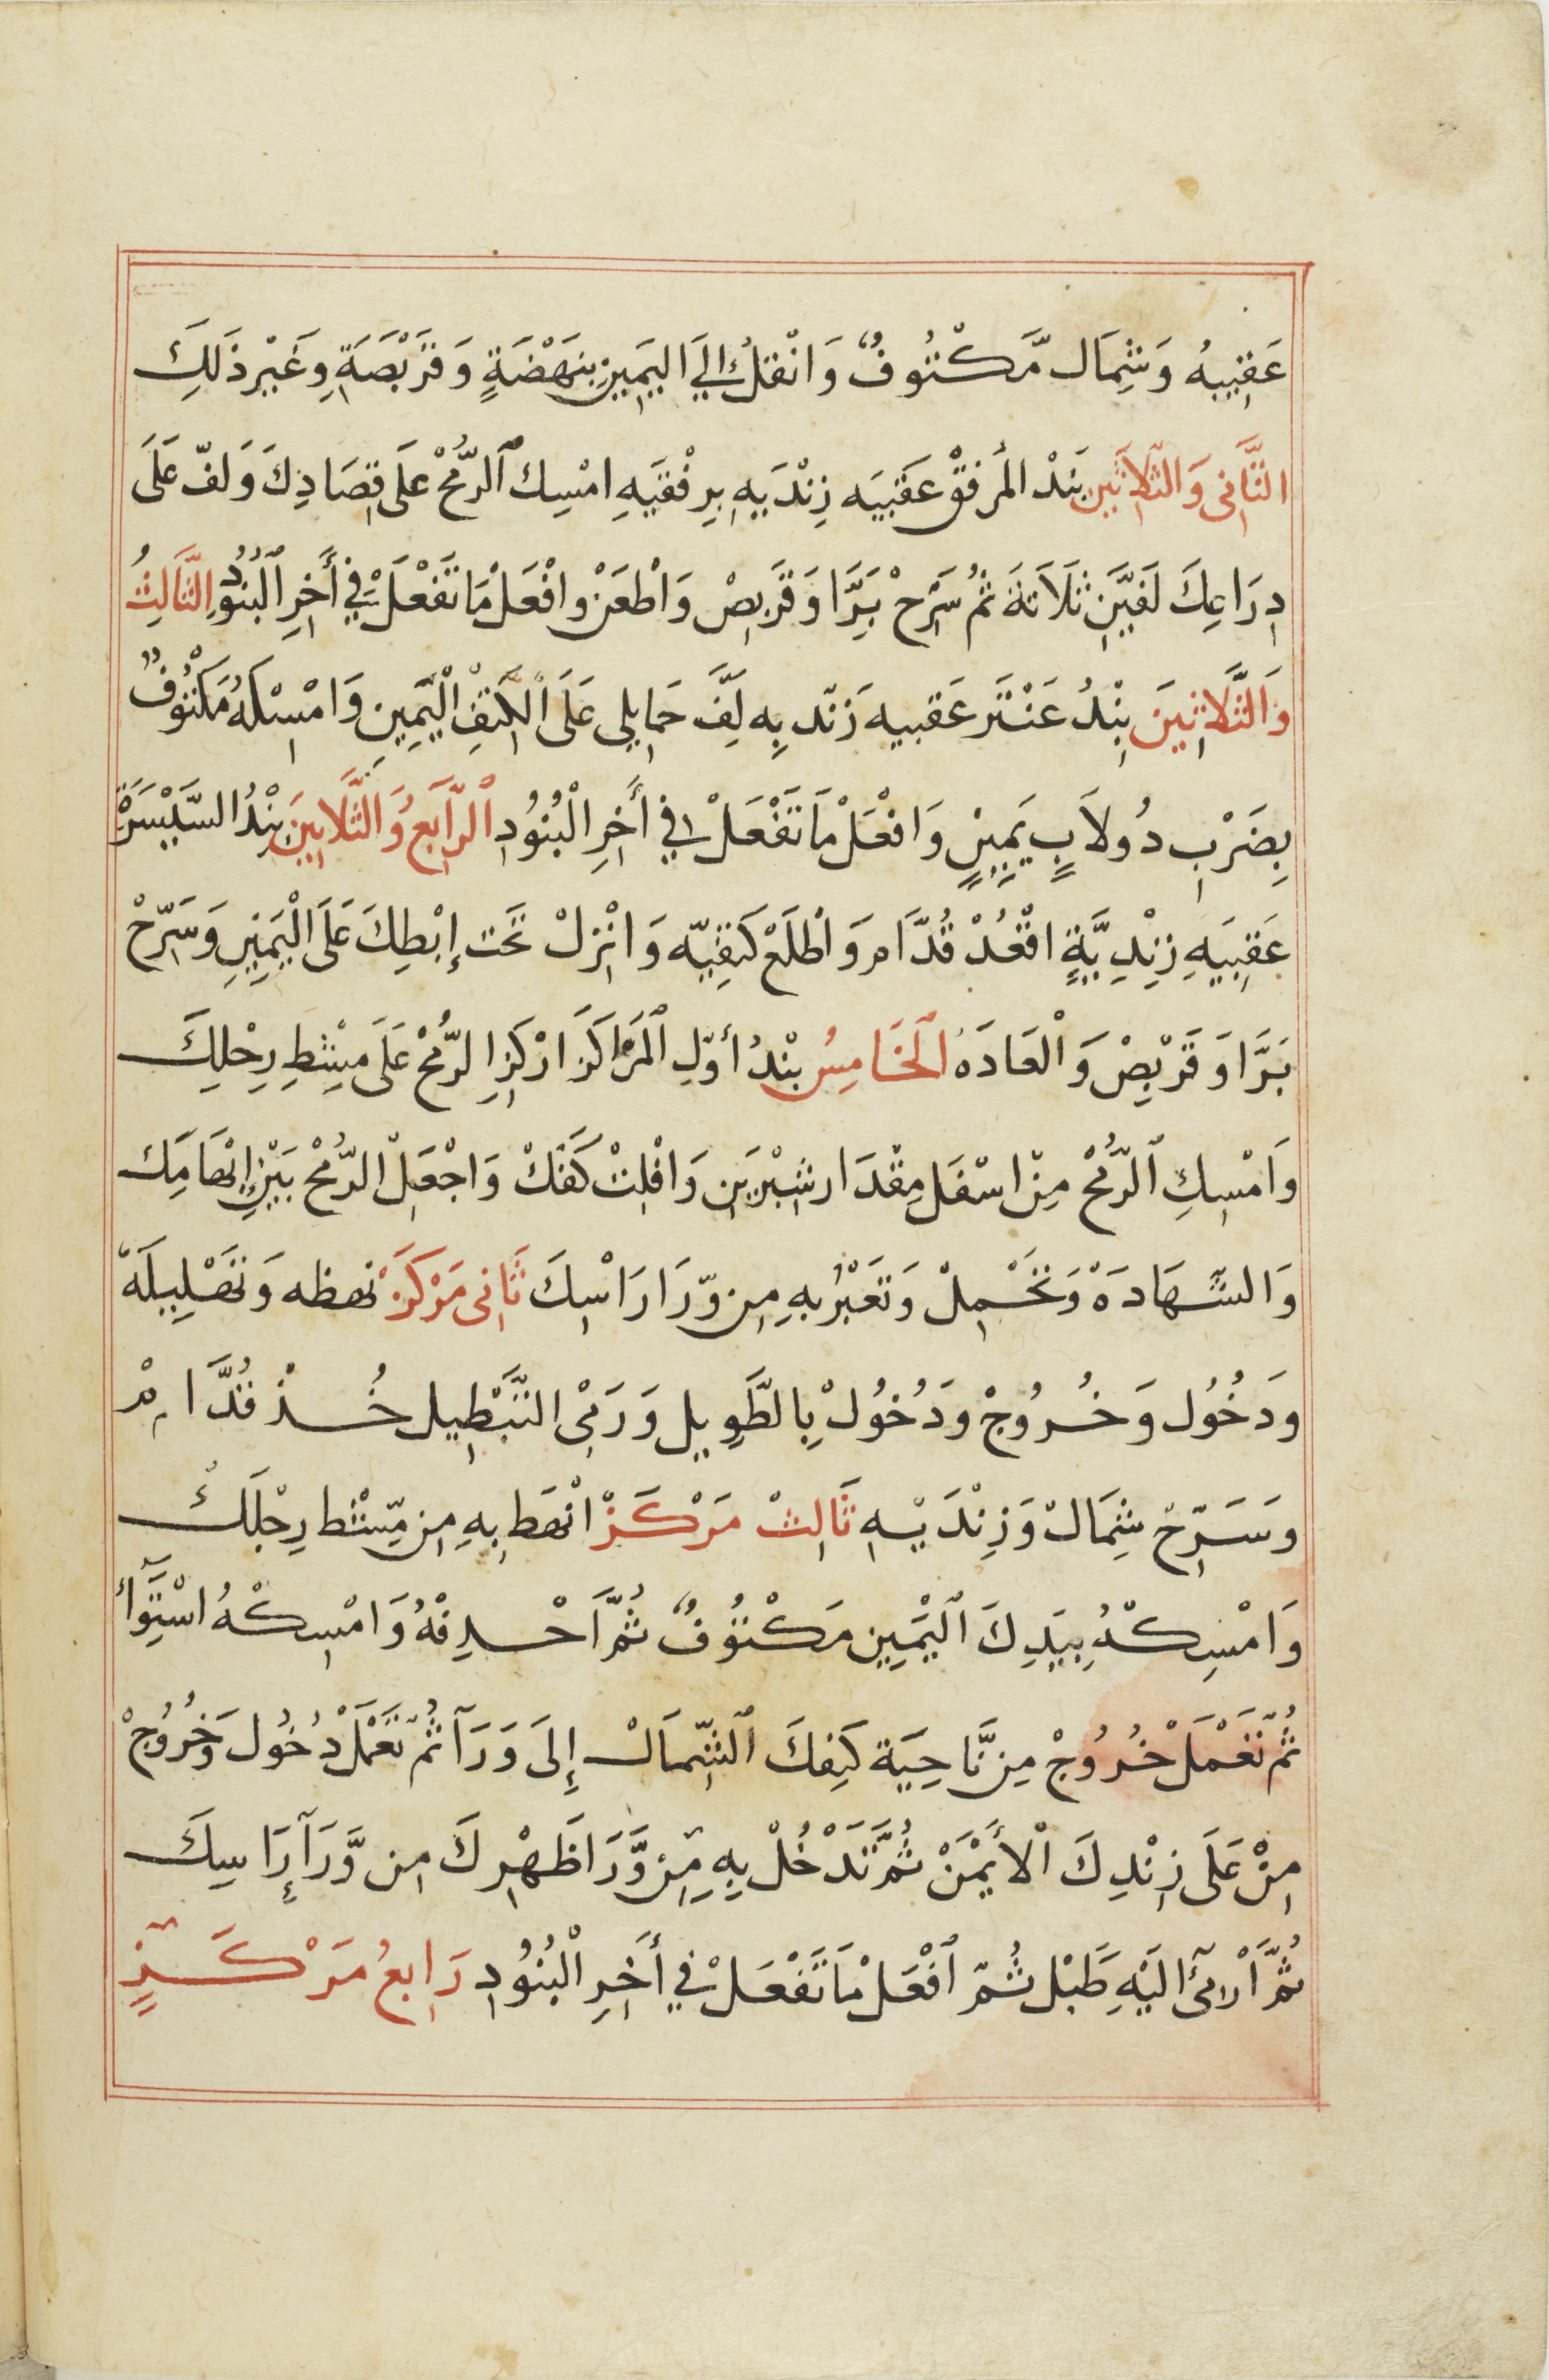 عَقِبِيهُ وَشِمَال مَّكْتُوفٌ وَانْقُلْ إِلَيَ اليَمِينِ بِنَهْضَةٍ وَقَرْبَصَةِ وَغَيْر ذَلِكَ
الثَّانِى وَالثَّلاَثِين بَنْد المَرفقْ عَقَبيَه زِنْدَيهِ بِرِفْقيَهِ امْسِك الرُّمْحْ عَلَى قِصَادِكَ وَلفّ عَلَى
دِرَاعِكَ لَفِيَّنِ ثَلَاثَةَ ثُمْ سَرِّحْ بَرَّا وَقَرْبِصْ وَاطْعَنْ وافْعَلْ مَا تَفْعَلْ فِي أَخِرِ الْبُنُودِ الثَّالِثُ
وَالثَّلَاثِينَ بِنْدُ عَنْتَر عَقبيه زَنْد بِهِ لَفَّ حَمايلي عَلَى الْكَتِفْ الْيَمِينِ وَامْسِكْهُ مَكْتُوفٌ
بِضَرْبِ دُولاَبٍ يَمِينٍ وَافْعَلْ مَا تَفْعَلْ فِي أَخِرِ الْبُنُودِ الرَّابِعُ وَالثَّلاَثِينَ بِنْدُ السَّلِيْسَرَةْ
عَقِبَيهِ زِنْدِيَّةٍ اقْعُدْ قُدَّام وَاطْلَعْ كَتِفيّه وَانْزِلْ تَحْت إِبْطِكَ عَلَى الْيَمِينِ وَسَرِّحْ
بَرَّا وَقَرْبِصْ وَالْعَادَهْ الْخَامِسُ بنْدُ أوّلِ المَرَاكَز ارْكَزِ الرُّمْحْ عَلَى مِشْطِ رِجْلِكَ
وَامْسِكِ الرُّمْحْ مِنْ اسْفَل مِقْدَار شِبْرَينِ وَافْلِتْ كَفَّكْ وَاجْعَلِ الرُّمْحْ بَيْنِ إبْهَامِكَ
وَالشَّهَادَهْ وَتَحْمِلْ وَتَعَبْرُ بِهِ مِن وّرَا رَاسْكَ ثَانِى مَرْكَزْ نهظه وَتَصْلِيبَةَ
وَدَخُول وَخُرُوجْ وَدُخُولْ بِالطَّوِيل وَرَمْي التَّبْطِيل خُذْ قُدَّامْ
وَسَرِّحْ شِمَالْ وَزِنْدَيْهِ ثَالِثْ مَرْكَزْ انْهَط بِهِ مِن مِّشْط رِجْلَكْ
وَامْسِكْهُ بِيَدِكَ الْيَمِين مَكْتُوُفٌ ثُمَّ احْدِفْهُ وَامْسِكْهُ اسْتِوَآ
ثُمَّ تَعْمَلْ خُرُوجْ مِن نَّاحِيَة كَتِفكَ الشِّمَالْ إِلَى وَرَآ ثُمّ تَعْمَلْ دُخُول وَخُرُوجْ
مِنْ عَلَى زِنْدِكَ الْأَيْمَنْ ثُمَّ تَدْخُلْ بِهِ مِن وَّرَا ظَهْرِكَ مِن وَّرَآ رَاسِكَ
ثُمَّ ارْمِىَ الَيْهِ طَبْل ثُمّ افْعَلْ مَا تَفْعَلْ فِي أَخِرِ الْبُنُودِ رَابِعُ مَرْكَزٍ